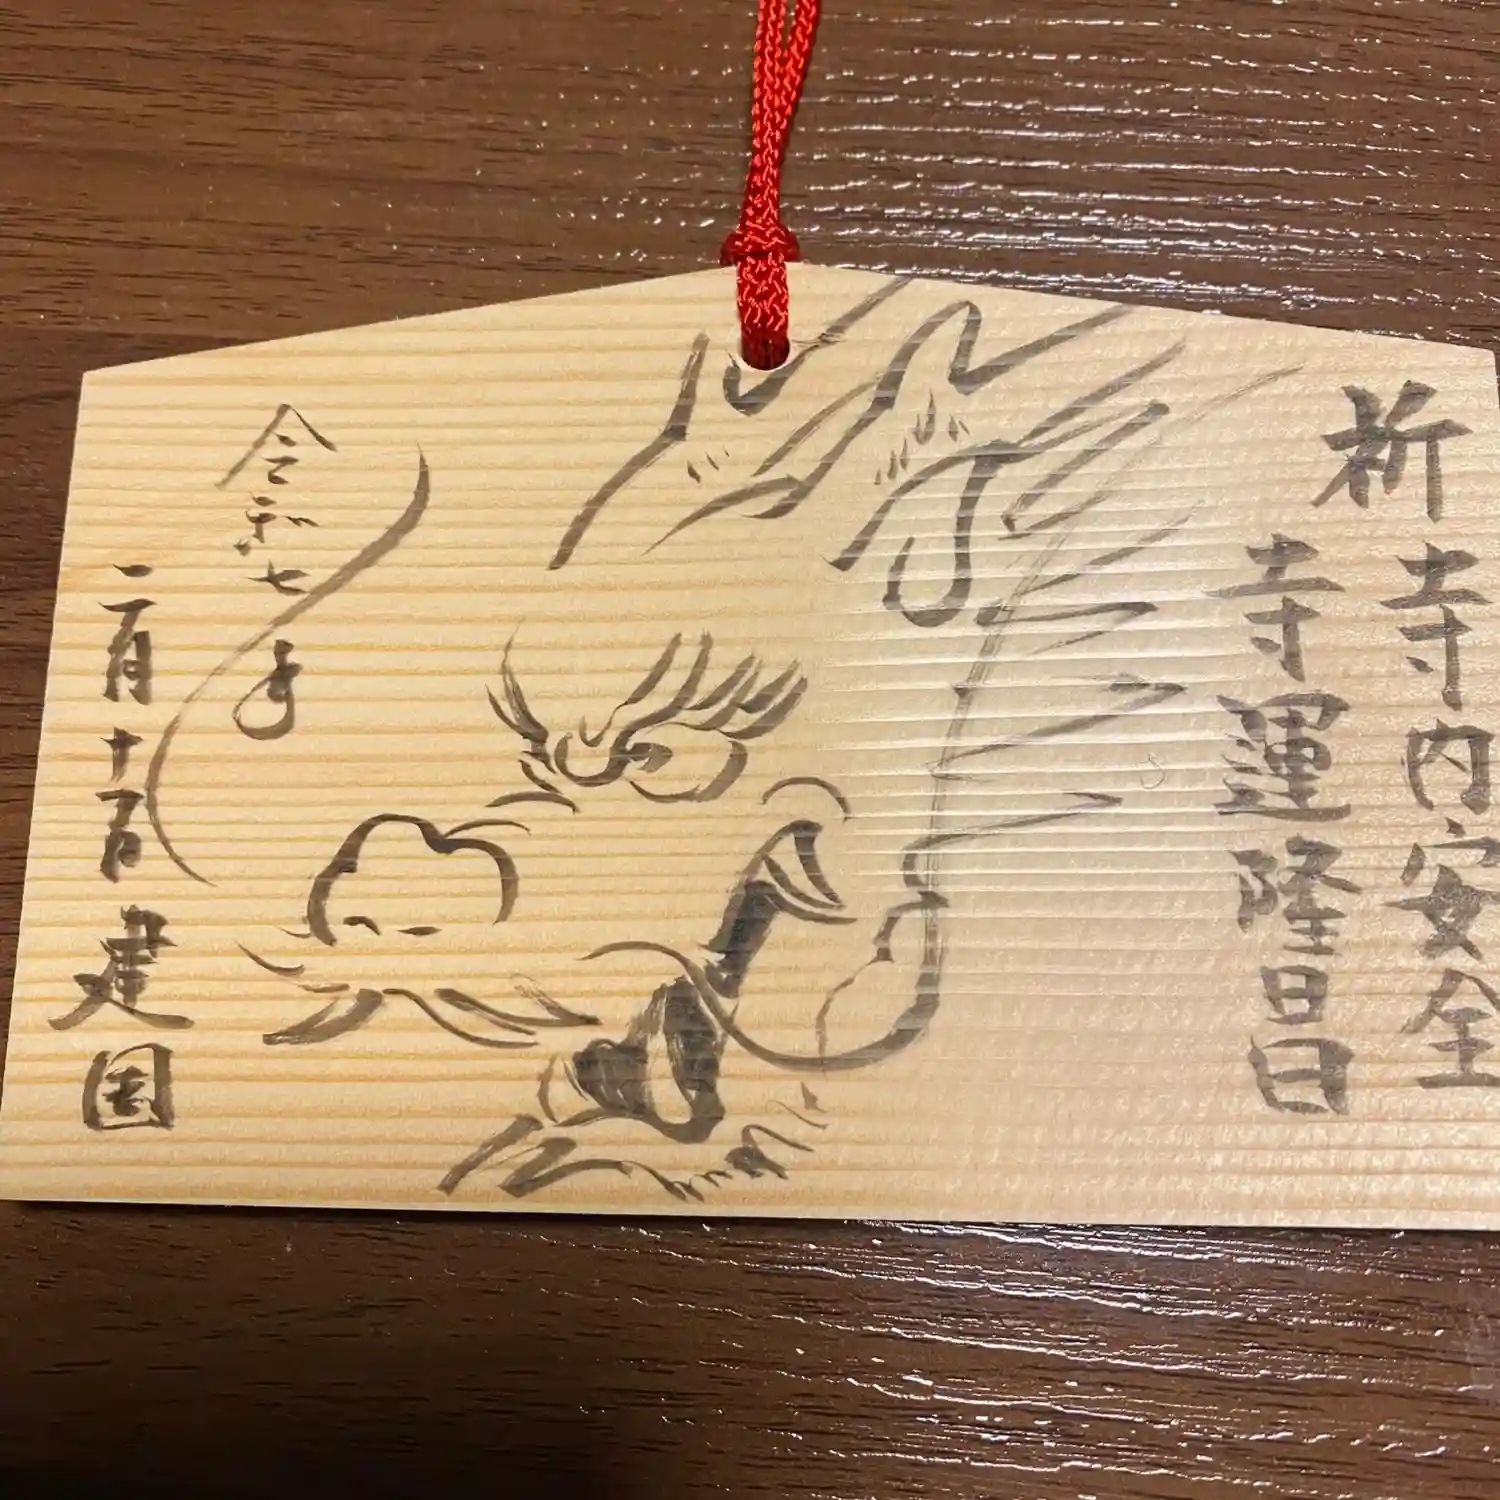 祈 寺内安全
寺運隆昌
令和七年
二月十一日 建国